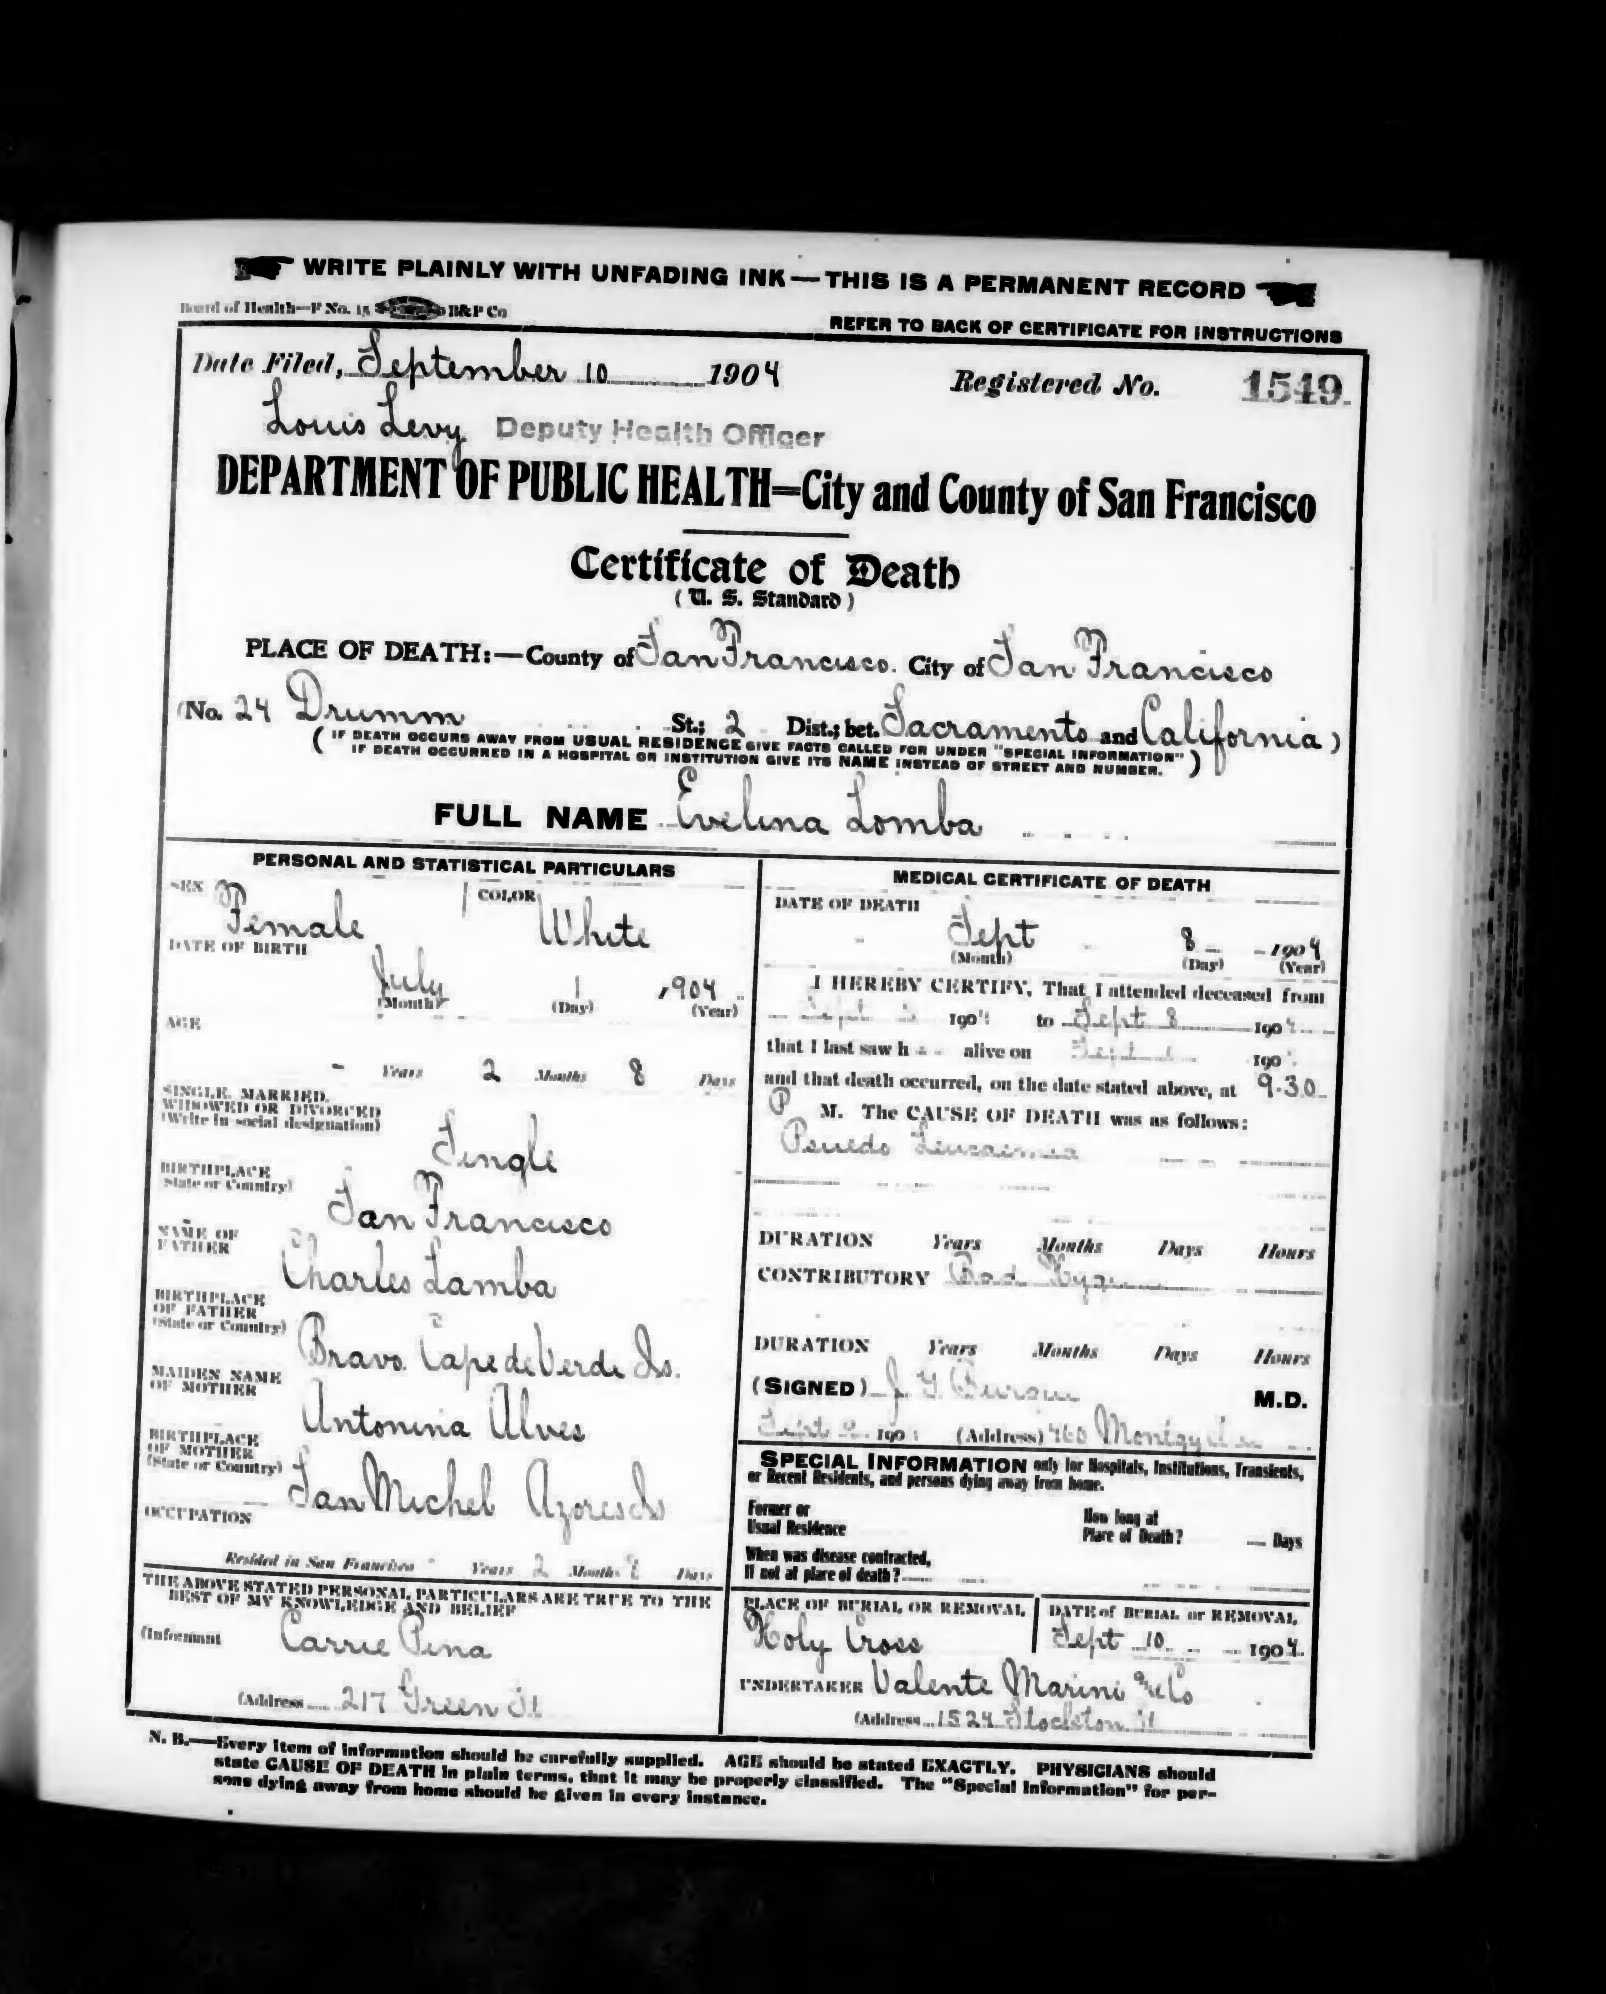 WRITE PLAINLY WITH UNFADING INK—THIS IS A PERMANENT RECORD
Board of Health—F No. 15 B&P Co
REFER TO BACK OF CERTIFICATE FOR INSTRUCTIONS
Date Filed, September 10 1904 Registered No. 1549
Louis Levy Deputy Health Officer
DEPARTMENT OF PUBLIC HEALTH—City and County of San Francisco
Certificate of Death
(U. S. Standard)
PLACE OF DEATH:—County of San Francisco. City of San Francisco
(No. 24 Drumm St.; 2 Dist.; bet. Sacramento and California)
(IF DEATH OCCURS AWAY FROM USUAL RESIDENCE GIVE FACTS CALLED FOR UNDER "SPECIAL INFORMATION"
IF DEATH OCCURRED IN A HOSPITAL OR INSTITUTION GIVE ITS NAME INSTEAD OF STREET AND NUMBER.)
FULL NAME Evelina Lomba
PERSONAL AND STATISTICAL PARTICULARS
SEX Female COLOR White
DATE OF BIRTH
July 1 1904
(Month) (Day) (Year)
AGE
- Years 2 Months 8 Days
SINGLE, MARRIED,
WIDOWED OR DIVORCED
(Write in social designation)
Single
BIRTHPLACE
State or Country)
San Francisco
NAME OF
FATHER
Charles Lamba
BIRTHPLACE
OF FATHER
(State or Country)
Bravo. Cape de Verde Is.
MAIDEN NAME
OF MOTHER
Antonina Alves
BIRTHPLACE
OF MOTHER
(State or Country)
San Michel Azores Is
OCCUPATION
Resided in San Francisco - Years 2 Months 8 Days
THE ABOVE STATED PERSONAL PARTICULARS ARE TRUE TO THE
BEST OF MY KNOWLEDGE AND BELIEF
(Informant Carrie Pina
(Address 217 Green St
MEDICAL CERTIFICATE OF DEATH
DATE OF DEATH
Sept 8 1904
(Month) (Day) (Year)
I HEREBY CERTIFY, That I attended deceased from
Sept 190 to Sept 8 190
that I last saw h alive on Sept 190
and that death occurred, on the date stated above, at 9.30
P M. The CAUSE OF DEATH was as follows:
Leucaemia
DURATION Years Months Days Hours
CONTRIBUTORY Bad
DURATION Years Months Days Hours
(SIGNED) J M.D.
Sept 190 (Address)
SPECIAL INFORMATION only for Hospitals, Institutions, Transients,
or Recent Residents, and persons dying away from home.
Former or
Usual Residence
How long at
Place of Death? Days
When was disease contracted,
If not at place of death?
PLACE OF BURIAL OR REMOVAL
Holy Cross
DATE of BURIAL or REMOVAL
Sept 10 1904
UNDERTAKER Valente Marini & Co
(Address 1524 Stockton St
N. B.—Every item of information should be carefully supplied. AGE should be stated EXACTLY. PHYSICIANS should
state CAUSE OF DEATH in plain terms, that it may be properly classified. The "Special Information" for per-
sons dying away from home should be given in every instance.